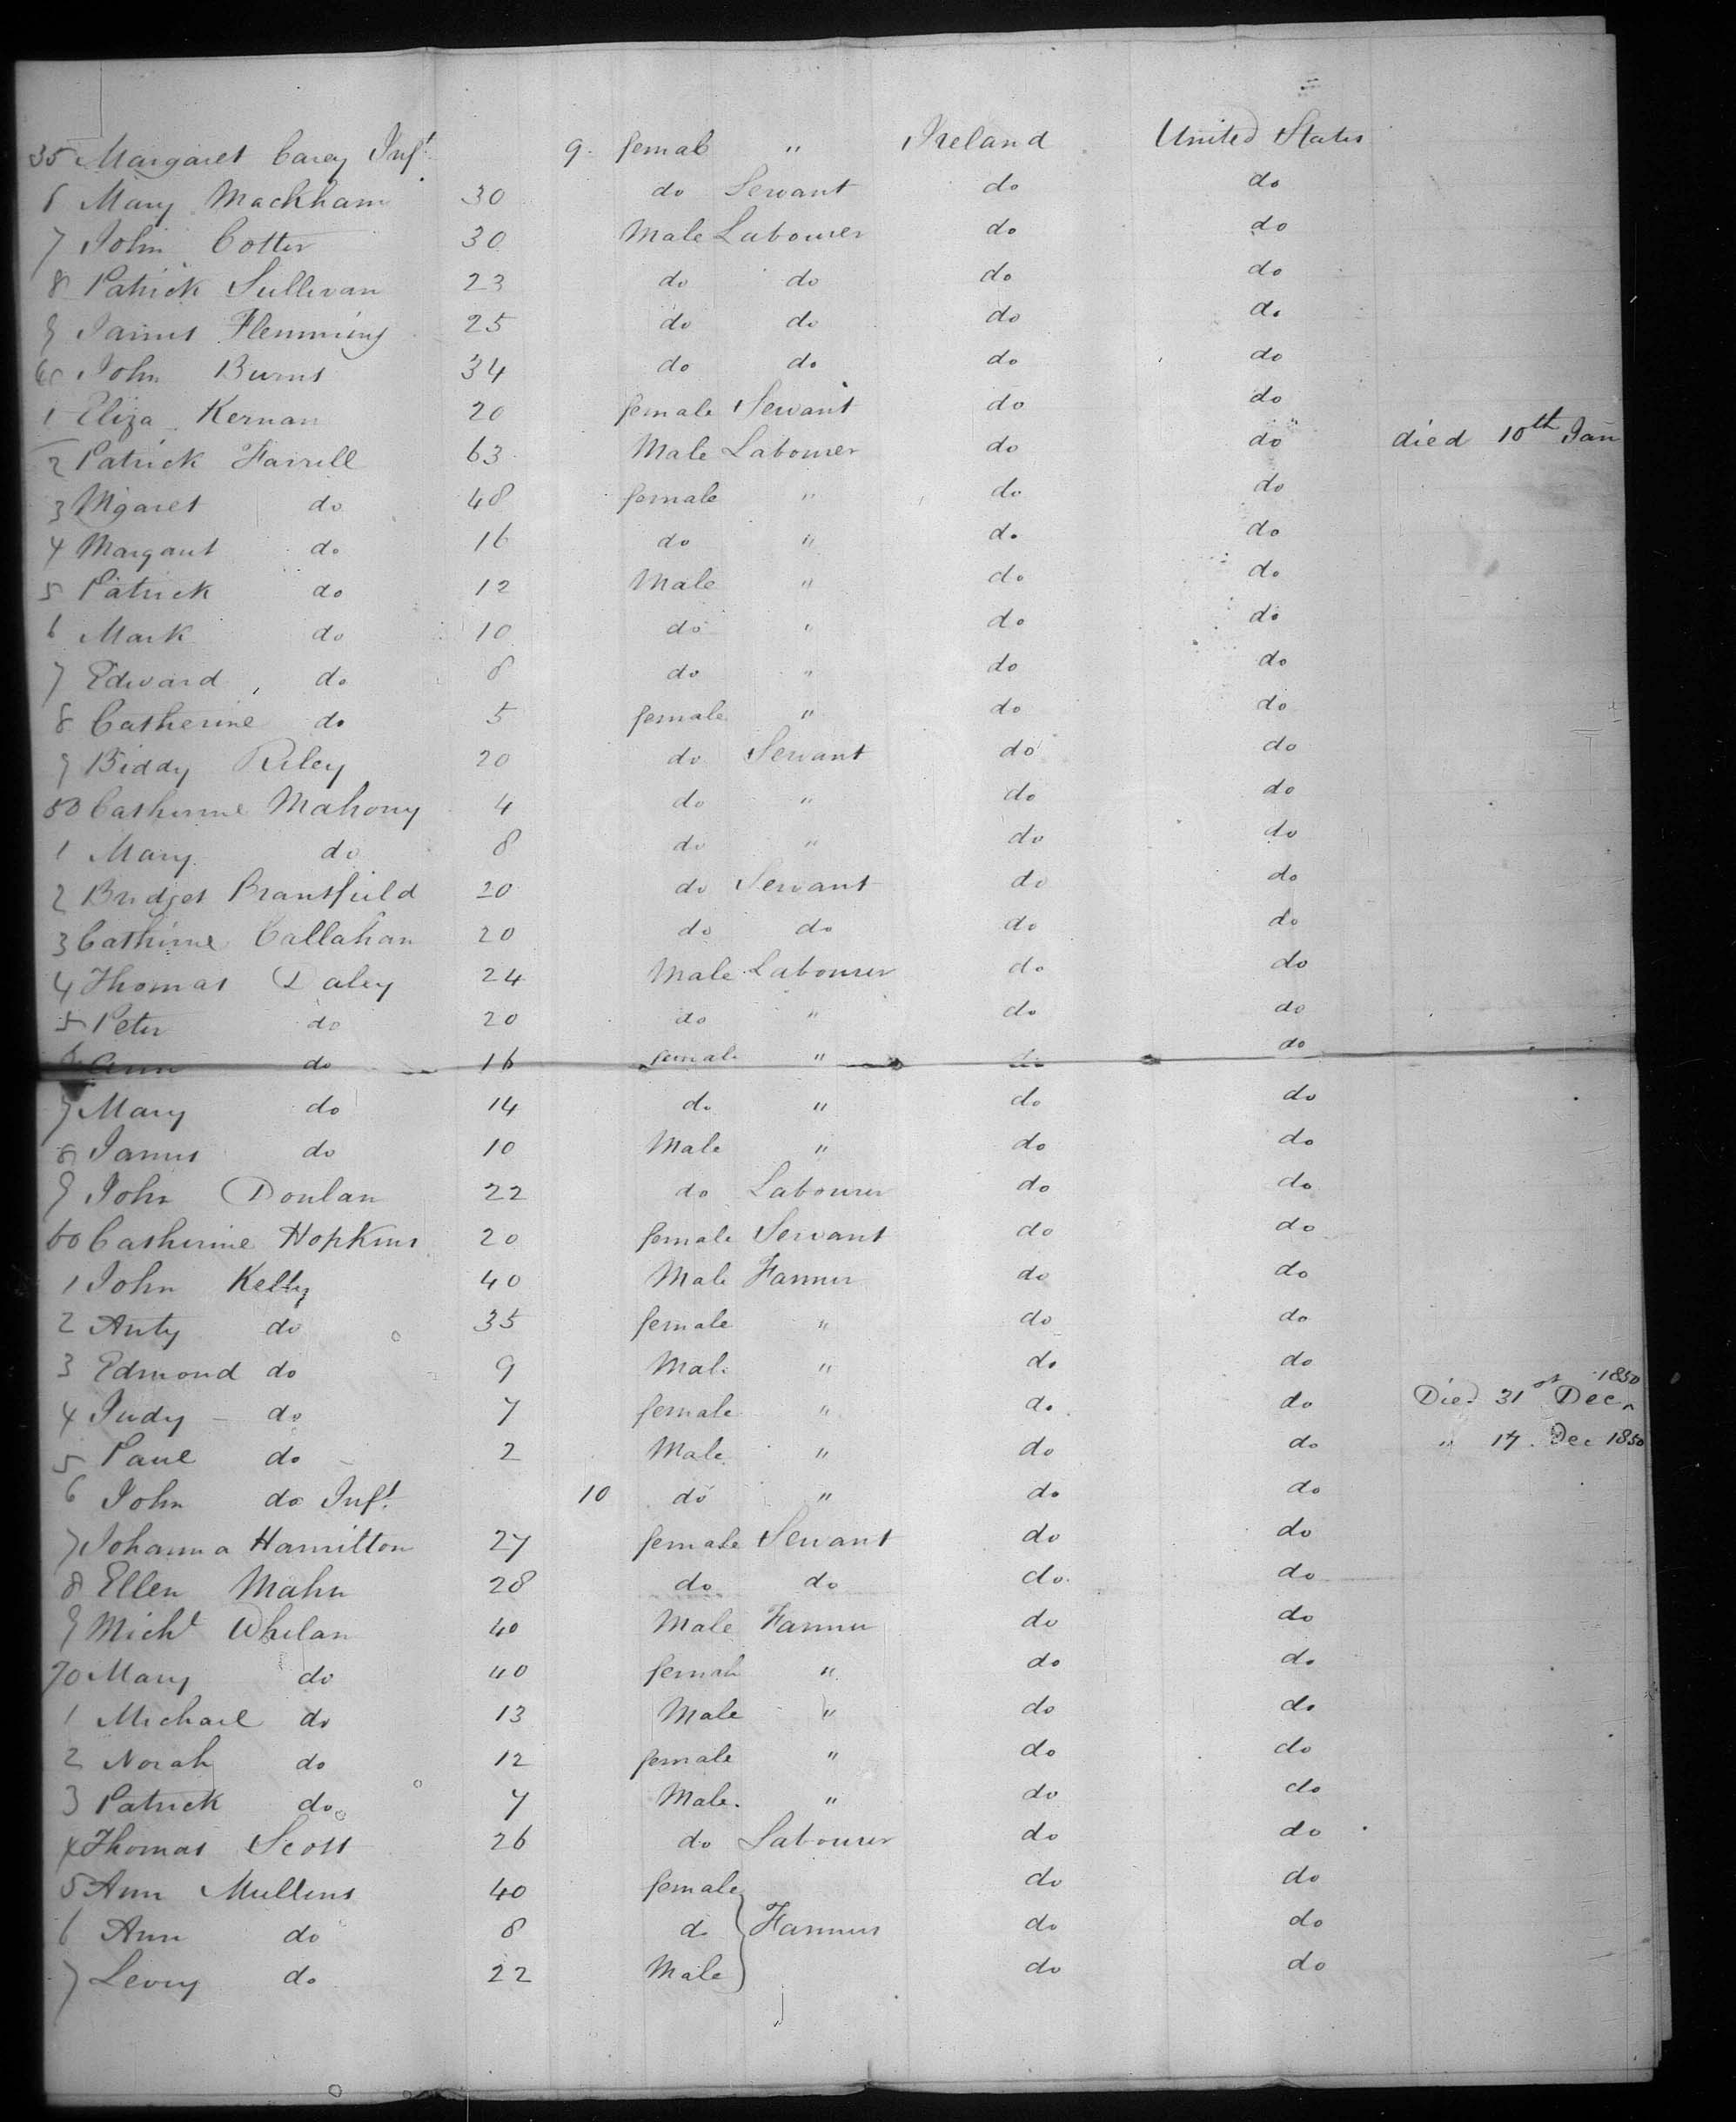 35 Margaret Carey Inft. 9. female " Ireland United States
6 Mary Mackham 30 do Servant do do
7 John Cotter 30 Male Labourer do do
8 Patrick Sullivan 23 do do do do
9 James Flemming 25 do do do do
40 John Burns 34 do do do do
1 Eliza Kernan 20 female Servant do do
2 Patrick Farrell 63 Male Labourer do do died 10th Jan
3 Mgaret do 48 female " do do
4 Margaret do 16 do " do do
5 Patrick do 12 Male " do do
6 Mark do 10 do " do do
7 Edward do 8 do " do do
8 Catherine do 5 female " do do
9 Biddy Riley 20 do Servant do do
50 Catherine Mahony 4 do " do do
1 Mary do 8 do " do do
2 Bridget Bransfield 20 do Servant do do
3 Catherine Callahan 20 do do do do
4 Thomas Daley 24 Male Labourer do do
5 Peter do 20 do " do do
6 Ann do 16 female " do do
7 Mary do 14 do " do do
8 James do 10 Male " do do
9 John Donlan 22 do Labourer do do
60 Catherine Hopkins 20 female Servant do do
1 John Kelly 40 Male Farmer do do
2 Anty do 35 female " do do
3 Edmond do 9 Male " do do
4 Judy do 7 female " do do Died 31st Dec 1850
5 Paul do 2 Male " do do " 17 Dec 1850
6 John do Inft. 10 do " do do
7 Johanna Hamilton 27 female Servant do do
8 Ellen Mahn 28 do do do do
9 Michl Whelan 40 Male Farmer do do
70 Mary do 40 female " do do
1 Michael do 13 Male " do do
2 Norah do 12 female " do do
3 Patrick do 7 Male. " do do
4 Thomas Scott 26 do Labourer do do
5 Ann Mullins 40 female do do
6 Ann do 8 do Farmers do do
7 Levry do 22 Male do do